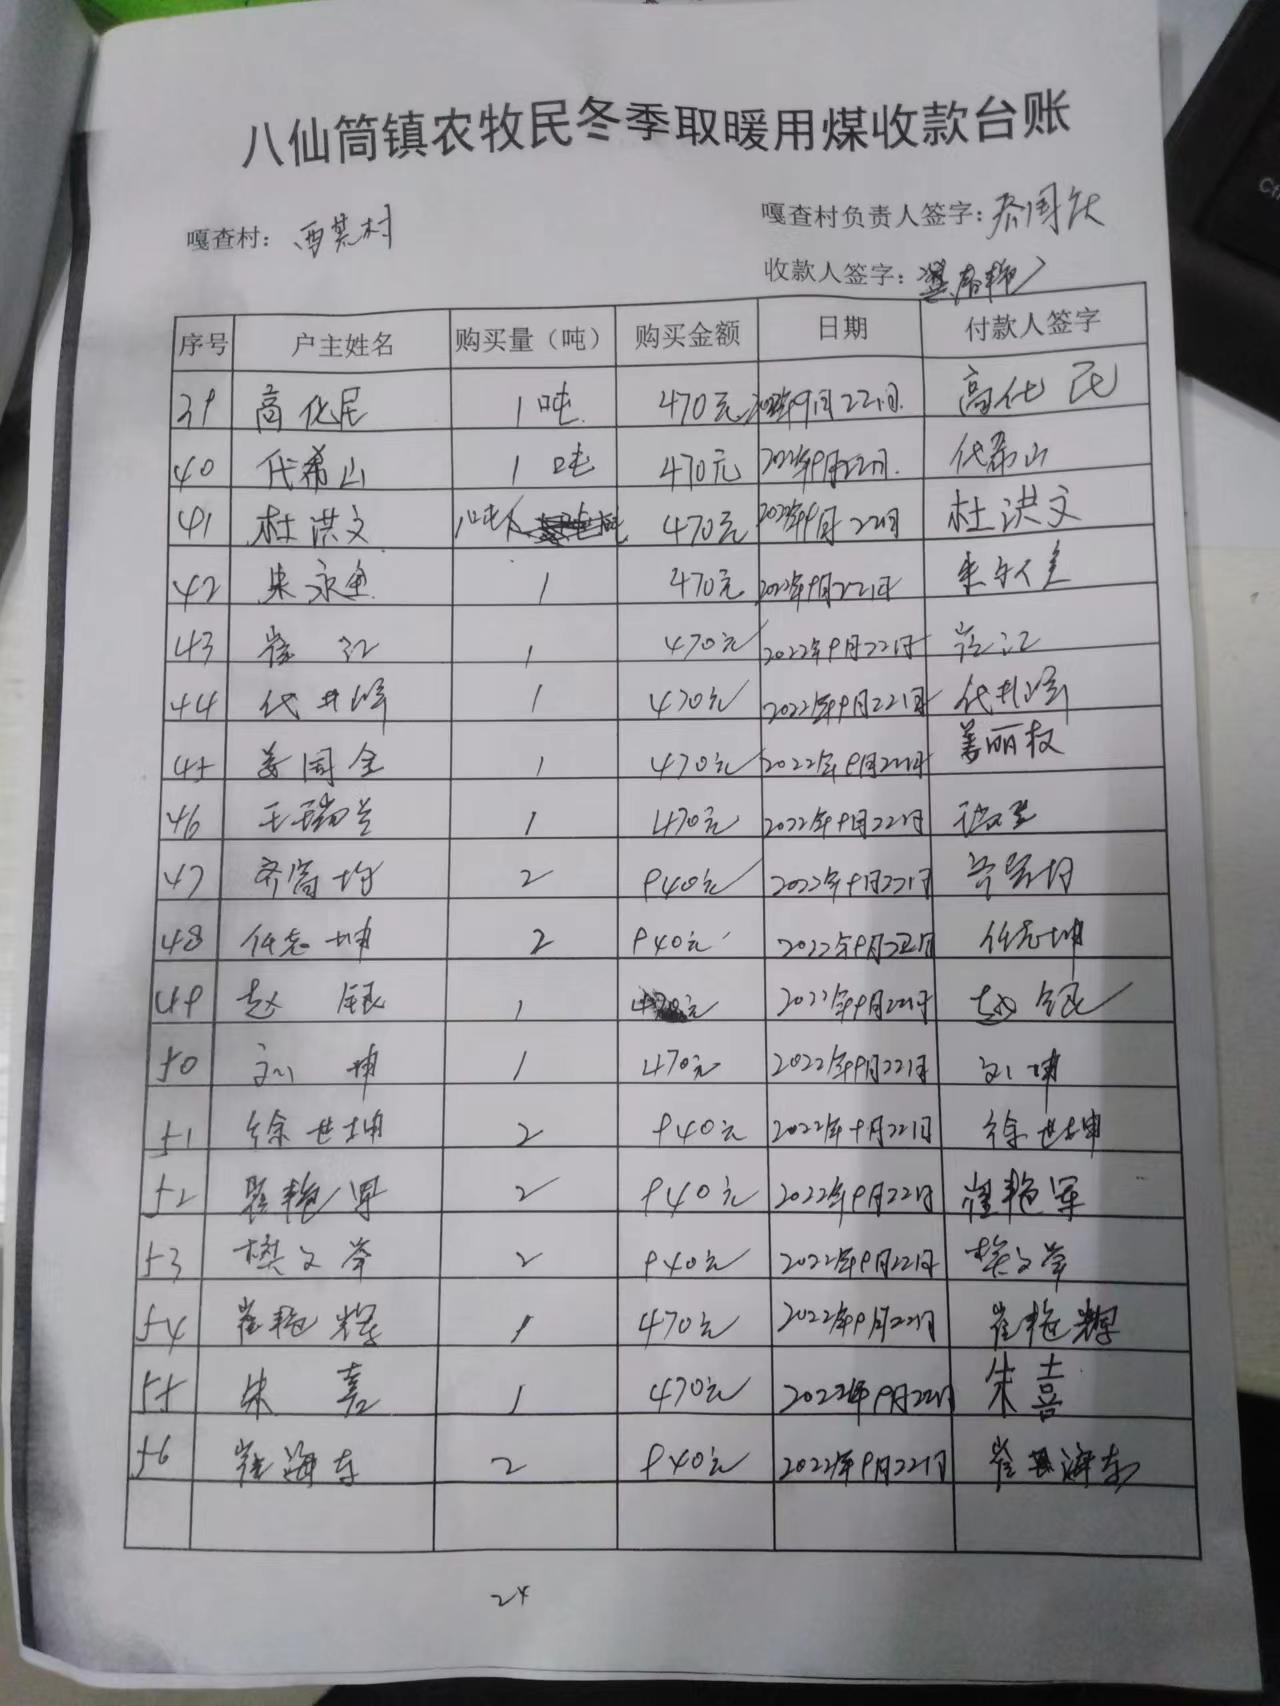 八仙筒镇农牧民冬季取暖用煤收款台账
嘎查村: 西其村 嘎查村负责人签字: 国
收款人签字:
序号 户主姓名 购买量（吨） 购买金额 日期 付款人签字
39 高化民 1吨 470元 2022年9月22日 高化民
40 代希山 1吨 470元 2022年9月22日 代希山
41 杜洪文 1吨 470元 2022年9月22日 杜洪文
42 朱永 1 470元 2022年9月22日 朱
43 崔江 1 470元 2022年9月22日 崔江
44 代井峰 1 470元 2022年9月22日 代井峰
45 姜国全 1 470元 2022年9月22日 姜丽权
46 王瑞兰 1 470元 2022年9月22日
47 齐富均 2 940元 2022年9月22日
48 任志坤 2 940元 2022年9月22日 任志坤
49 赵银 1 470元 2022年9月22日 赵银
50 刘坤 1 470元 2022年9月22日 刘坤
51 徐世坤 2 940元 2022年9月22日 徐世坤
52 艳军 2 940元 2022年9月22日 崔艳军
53 樊文举 2 940元 2022年9月22日 樊文举
54 崔艳辉 1 470元 2022年9月22日 崔艳辉
55 朱喜 1 470元 2022年9月22日 朱喜
56 崔海东 2 940元 2022年9月22日 崔海东
24